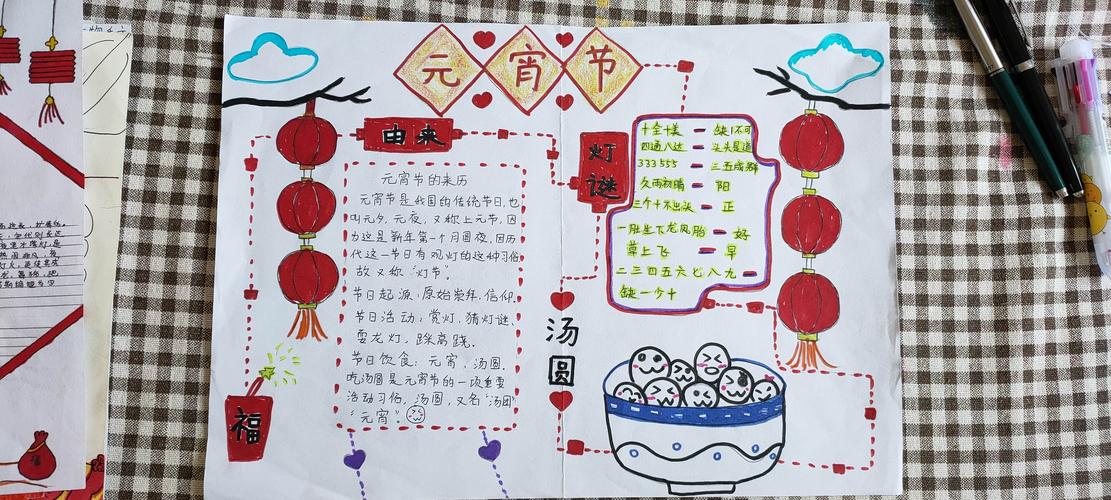 元宵节
由来
元宵节的来历
元宵节是我国的传统节日,也
叫元夕、元夜,又称上元节,因
为这是新年第一个月圆夜,因历
代这一节日有观灯的这种习俗,
故又称"灯节"。
节日起源:原始崇拜,信仰.
节日活动:赏灯、猜灯谜、
耍龙灯,踩高跷.
节日饮食:元宵、汤圆.
吃汤圆是元宵节的一项重要
活动习俗,汤圆,又名"汤团"
"元宵".
福
灯谜
十全十美 — 缺1不可
四通八达 — 头头是道
333 555 — 三五成群
久雨初晴 — 阳
三个十不出头 — 正
一胎生下龙凤胎 — 好
草上飞 — 早
二三四五六七八九 —
缺一少十
汤圆